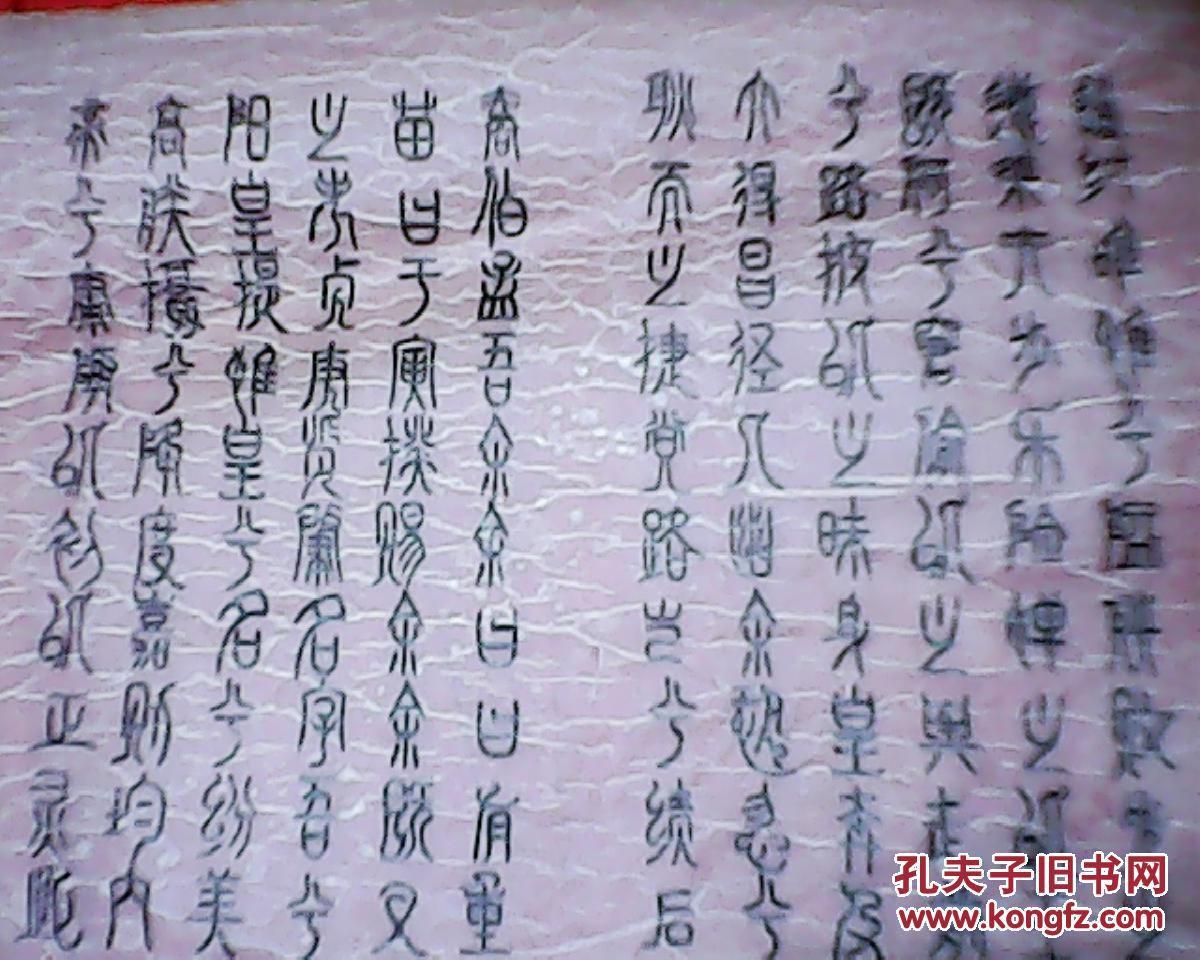 帝高阳之苗裔
兮朕皇考曰伯
庸摄提贞于孟
陬兮惟庚寅吾
以降皇览揆余
初度兮肇赐余
以嘉名名余曰
正则兮字余曰
灵均纷吾既有
此内美兮又重
耿介兮既遵
而得路何桀纣
之昌披兮夫唯
捷径以窘步惟
党人之偷乐兮
路幽昧以险隘
岂余身之惮殃
兮恐皇舆之败
绩忽奔走以
后兮及
孔夫子旧书网
www.kongfz.com